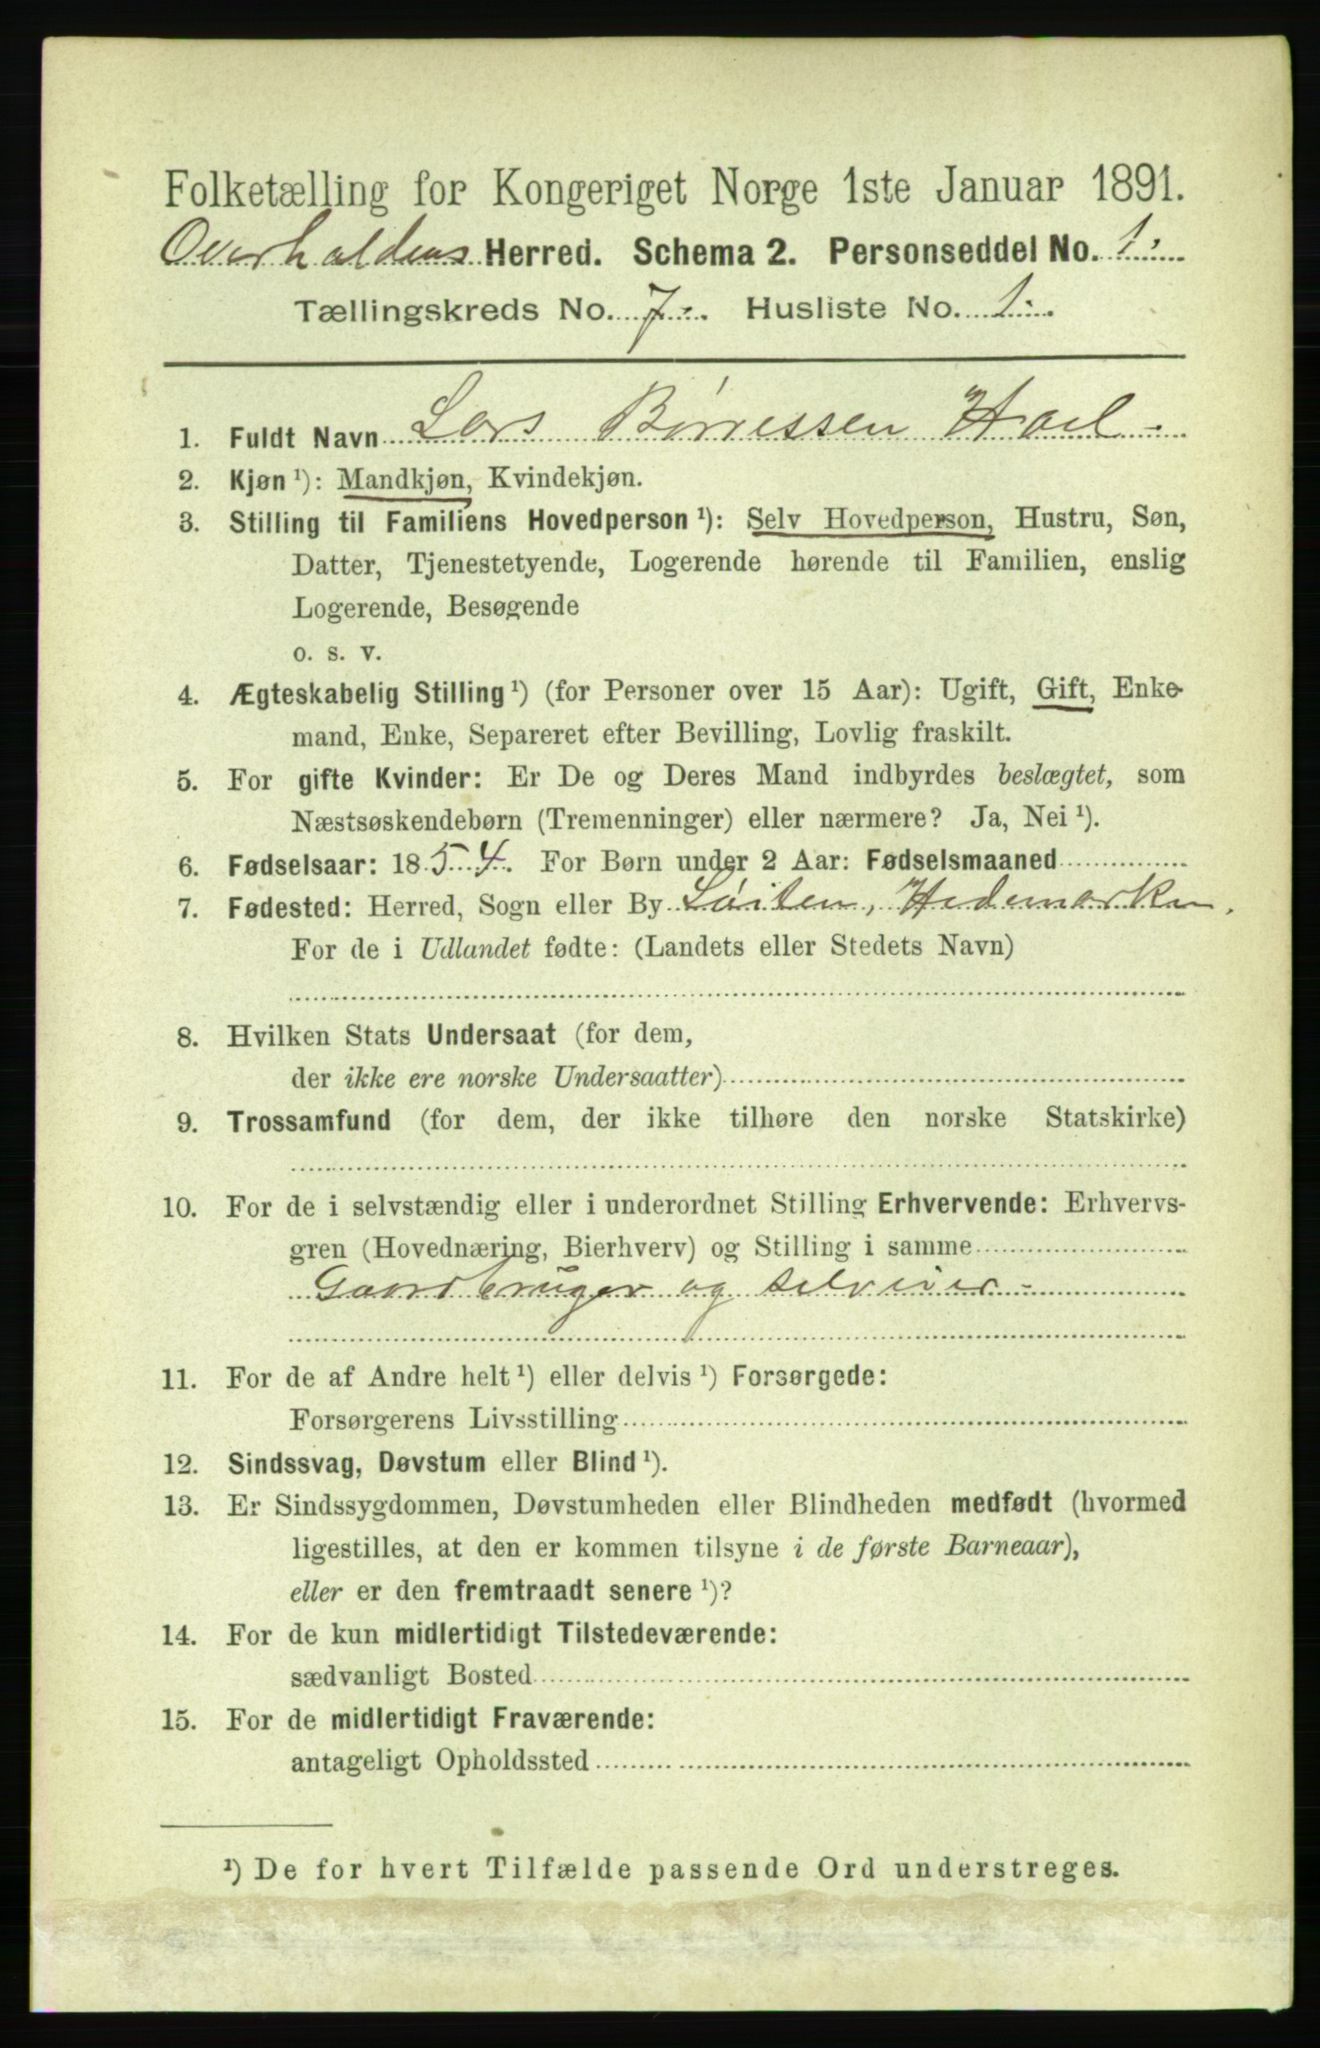 Folketælling for Kongeriget Norge 1ste Januar 1891.
Overhaldens Herred. Schema 2. Personseddel No. 1.
Tællingskreds No. 7. Husliste No. 1.
1. Fuldt Navn Lars Børressen
2. Kjøn ¹): Mandkjøn, Kvindekjøn.
3. Stilling til Familiens Hovedperson ¹): Selv Hovedperson, Hustru, Søn,
Datter, Tjenestetyende, Logerende hørende til Familien, enslig
Logerende, Besøgende
o. s. v.
4. Ægteskabelig Stilling ¹) (for Personer over 15 Aar): Ugift, Gift, Enke-
mand, Enke, Separeret efter Bevilling, Lovlig fraskilt.
5. For gifte Kvinder: Er De og Deres Mand indbyrdes beslægtet, som
Næstsøskendebørn (Tremenninger) eller nærmere? Ja, Nei ¹).
6. Fødselsaar: 1854. For Børn under 2 Aar: Fødselsmaaned
7. Fødested: Herred, Sogn eller By Løiten, Hedemarken.
For de i Udlandet fødte: (Landets eller Stedets Navn)
8. Hvilken Stats Undersaat (for dem,
der ikke ere norske Undersaatter)
9. Trossamfund (for dem, der ikke tilhøre den norske Statskirke)
10. For de i selvstændig eller i underordnet Stilling Erhvervende: Erhvervs-
gren (Hovednæring, Bierhverv) og Stilling i samme
Gaardbruger og selveier
11. For de af Andre helt ¹) eller delvis ¹) Forsørgede:
Forsørgerens Livsstilling
12. Sindssvag, Døvstum eller Blind ¹).
13. Er Sindssygdommen, Døvstumheden eller Blindheden medfødt (hvormed
ligestilles, at den er kommen tilsyne i de første Barneaar),
eller er den fremtraadt senere ¹)?
14. For de kun midlertidigt Tilstedeværende:
sædvanligt Bosted
15. For de midlertidigt Fraværende:
antageligt Opholdssted
¹) De for hvert Tilfælde passende Ord understreges.